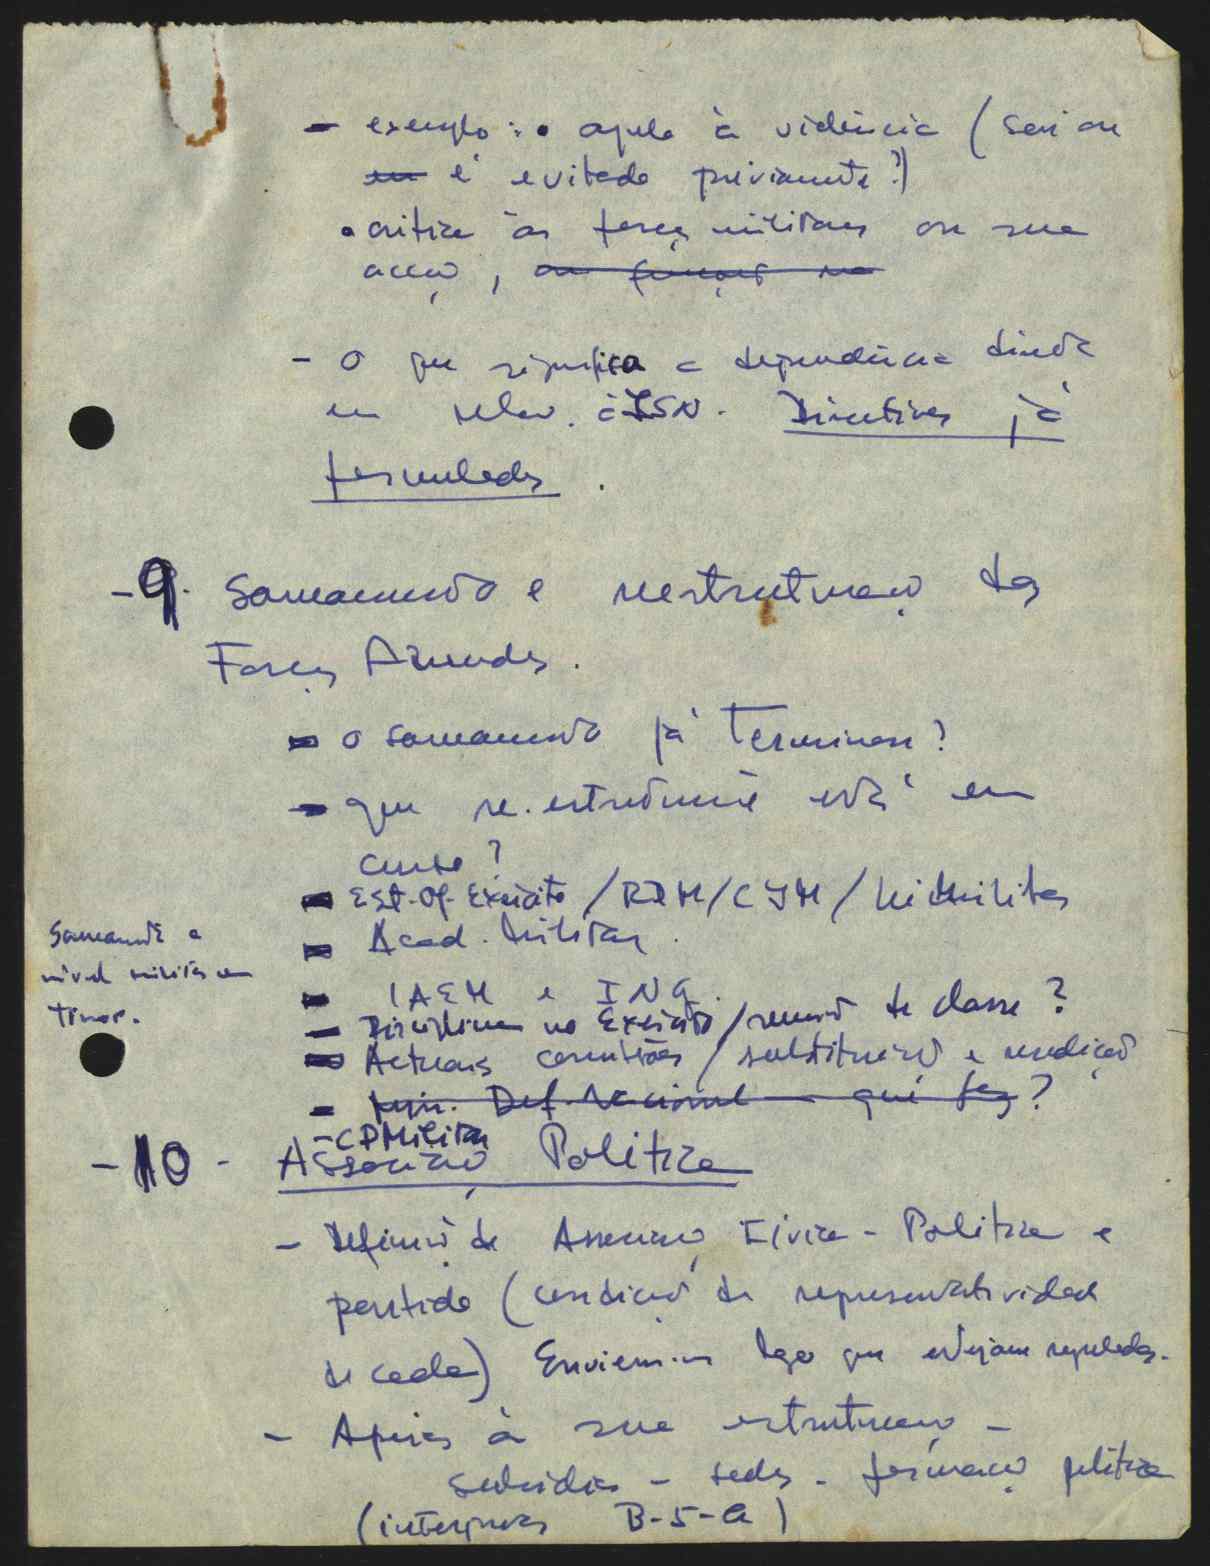 - exemplo: • apelo à violência (será ou
é evitado previamente?)
• critica às forças militares ou sua
acção, ou funções na
- O que significa a dependência directa
em relaç. à JSN. Directivas já
formuladas.
-9. Saneamento e reestruturação das
Forças Armadas.
- o saneamento já terminou?
- que re-estruturação está em
curso?
- Est. Of. Exército / RDM / CJM /
- Acad. Militar.
- IAEM e ING.
- Disciplina no Exército / reunião de classe?
- Actuais comissões / substituição e rendição
- Min. Def. Nacional - que faz?
- CPMilitar
Saneamento a
nível militar em
Timor.
-10- Associação Politica
- Definição de Associação Cívica-Politica e
partido (condição de representatividade
de cada) Enviem-se logo que estejam reguladas.
- Apoios à sua estruturação -
subsídios - sedes - formação politica
( B-5-a)